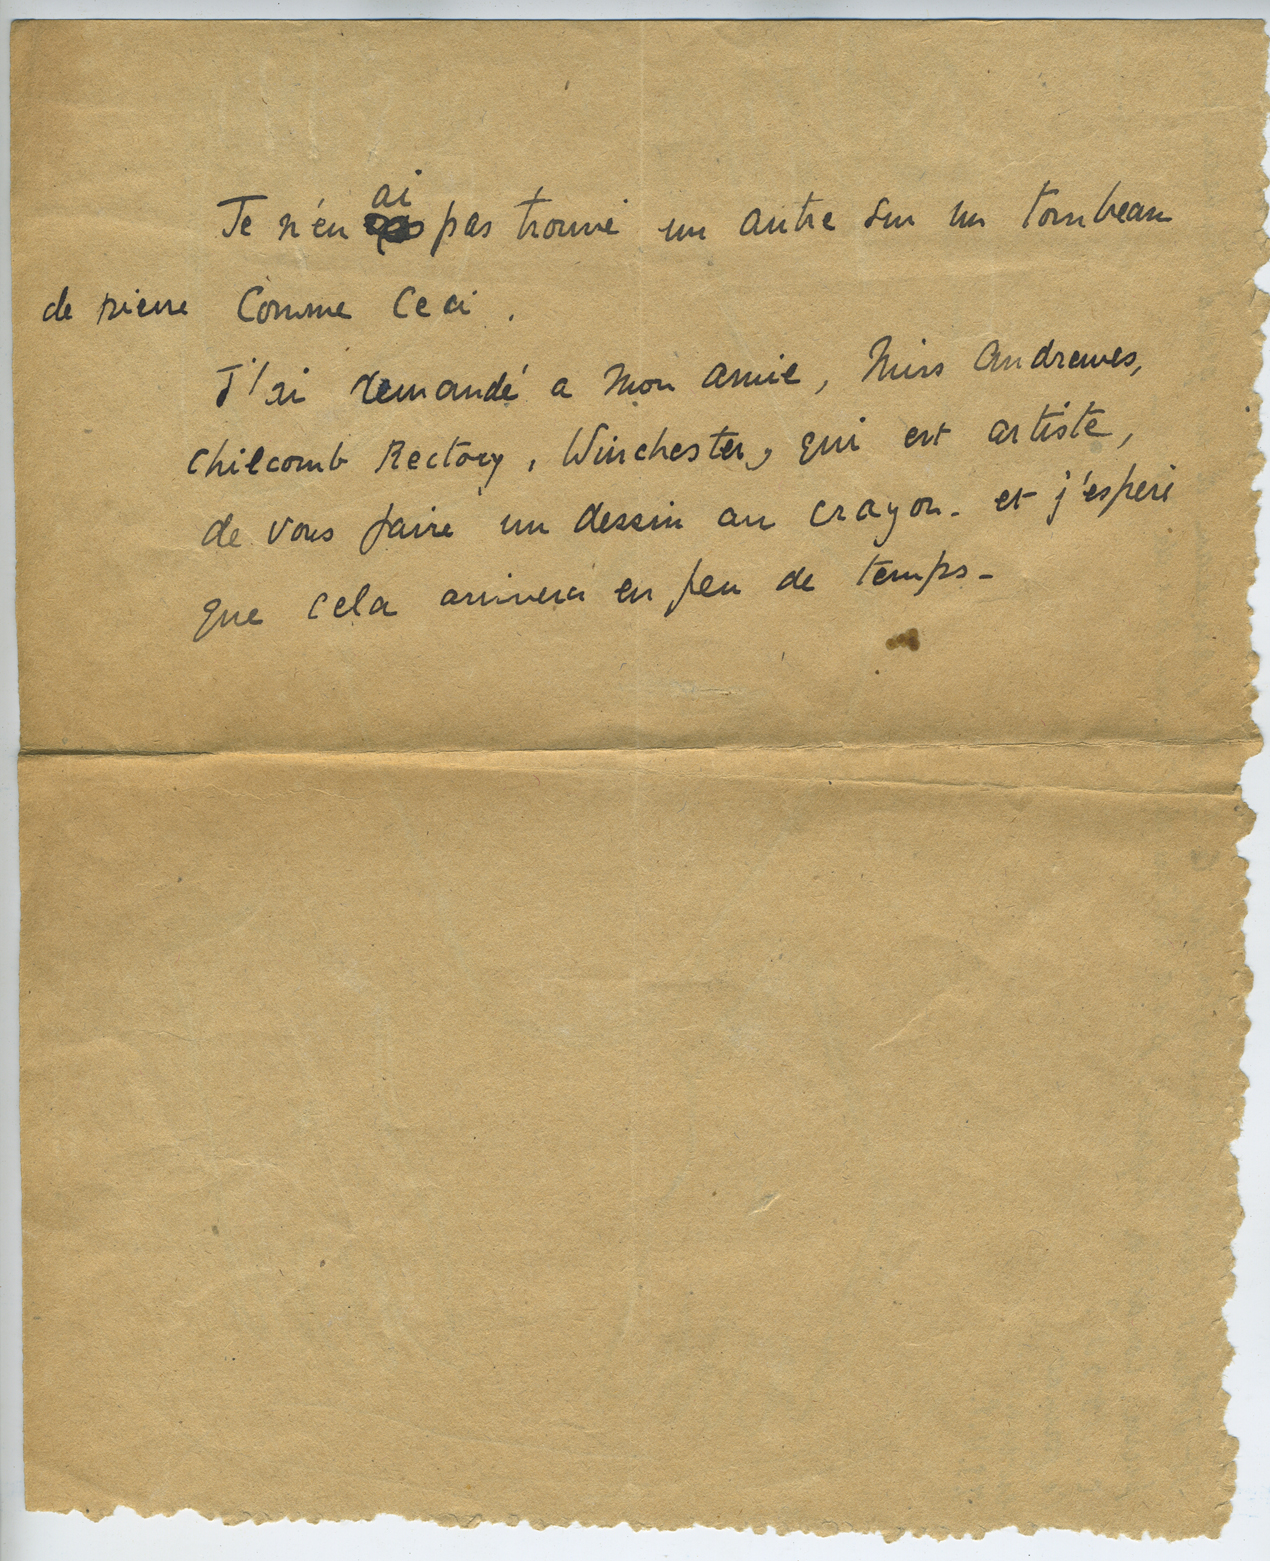 Je n'en ai pas trouvé un autre sur un tombeau
de pierre comme ceci.
J'ai demandé a mon amie, Miss Andrewes,
Chilcomb Rectory, Winchester, qui est artiste,
de vous faire un dessin au crayon. et j'espere
que cela arrivera en peu de temps -